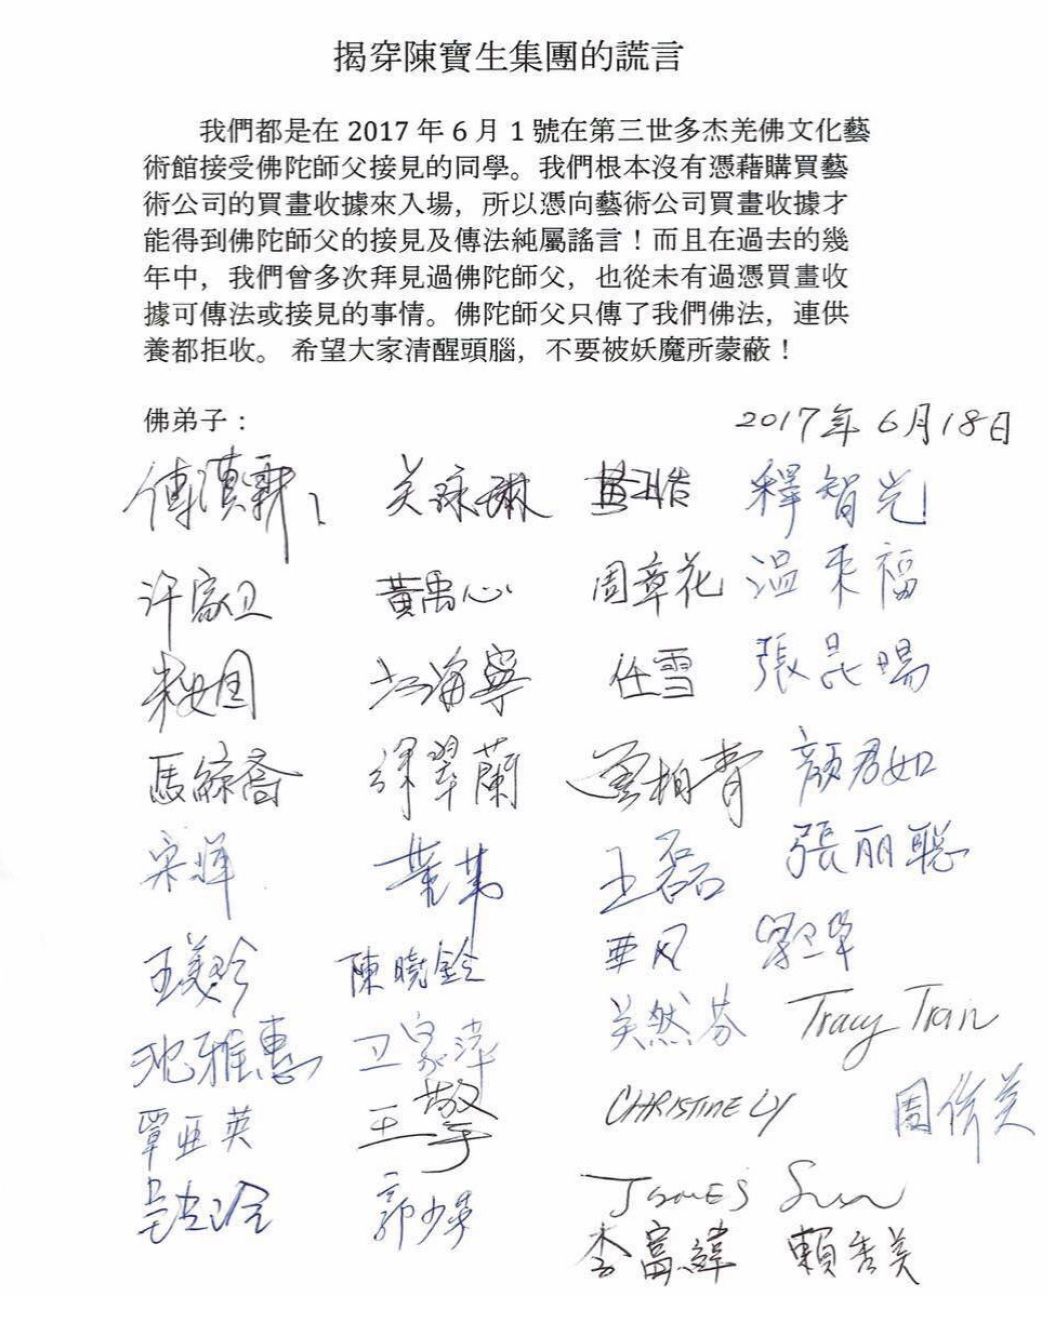 揭穿陳寶生集團的謊言
我們都是在 2017 年 6 月 1 號在第三世多杰羌佛文化藝
術館接受佛陀師父接見的同學。我們根本沒有憑藉購買藝
術公司的買畫收據來入場，所以憑向藝術公司買畫收據才
能得到佛陀師父的接見及傳法純屬謠言！而且在過去的幾
年中，我們曾多次拜見過佛陀師父，也從未有過憑買畫收
據可傳法或接見的事情。佛陀師父只傳了我們佛法，連供
養都拒收。 希望大家清醒頭腦，不要被妖魔所蒙蔽！
佛弟子： 2017年6月18日
关詠琳 釋智光
黃禹心 周章花 温來福
江海寧 任雪 張昆暘
馬鯨喬 繆翠蘭 顏君如
宋暉 王磊 張丽聪
王美玲 陳曉鈴
沈雅惠 卫家萍 关然芬 Tracy Tran
覃亚英 王擎 CHRISTINE LY
郭少華 JAMES Sun
李富緯 賴秀美